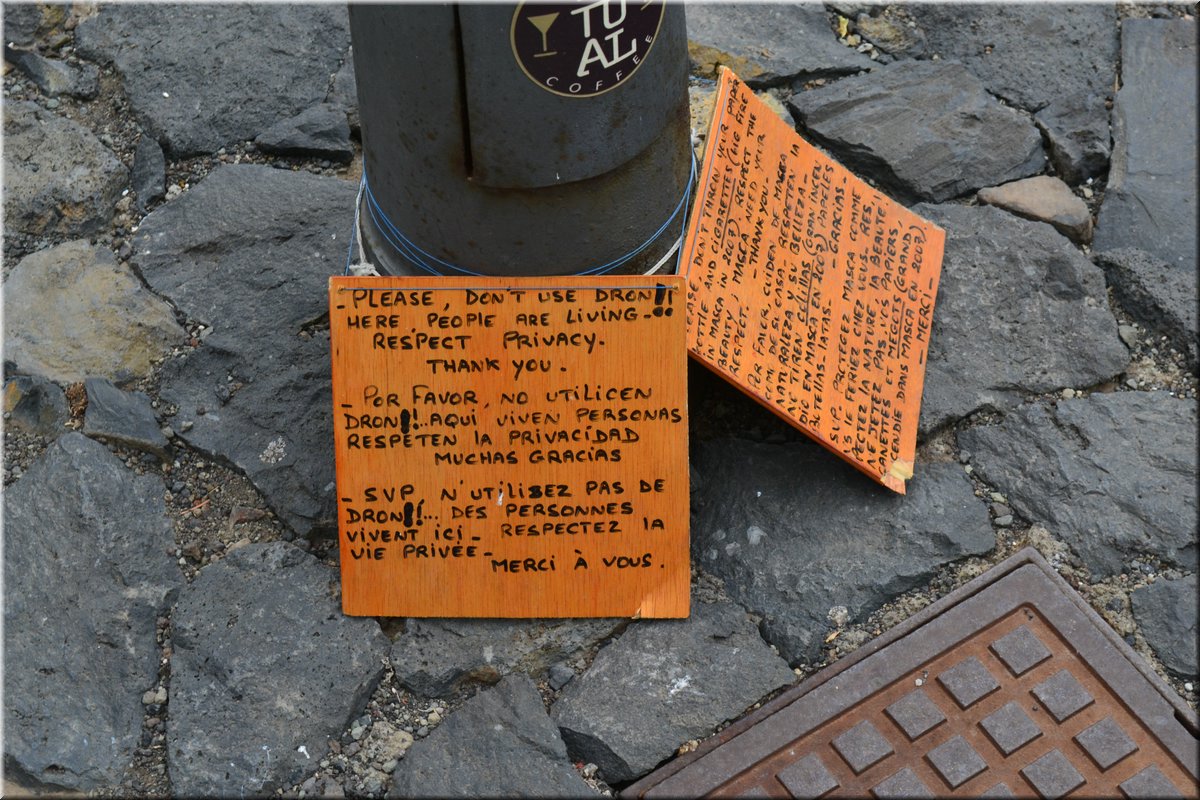 TU
AL
COFFEE
- PLEASE, DON'T USE DRON!!
HERE, PEOPLE ARE LIVING -
RESPECT PRIVACY.
THANK YOU.
- POR FAVOR, NO UTILICEN
DRON!!... AQUI VIVEN PERSONAS
RESPETEN LA PRIVACIDAD
MUCHAS GRACIAS
- SVP N'UTILISEZ PAS DE
DRON!!... DES PERSONNES
VIVENT ICI - RESPECTEZ LA
VIE PRIVÉE -
MERCI À VOUS.
DON'T THROW YOUR PAPER
AND CIGARETTES (BIG FIRE
IN MASCA IN 2007), RESPECT THE
BEAUTY; MASCA NEED YOUR
RESPECT. - THANK YOU -
POR FAVOR, CUIDEN DE MASCA
DE SU CASA. RESPETEN LA
NATURALEZA Y SU BELLEZA -
TIREN CERILLAS (GRAN INCEN
DIO EN MASCA EN 2007) PAPELES
LATAS - - GRACIAS -
SVP PROTEGEZ MASCA COMME
LE FERIEZ CHEZ VOUS. RES
PECTEZ LA NATURE, LA BEAUTÉ!
NE JETEZ PAS LES PAPIERS
CANETTES ET MEGOTS (GRAND
CENDIE DANS MASCA EN 2007)
- MERCI -